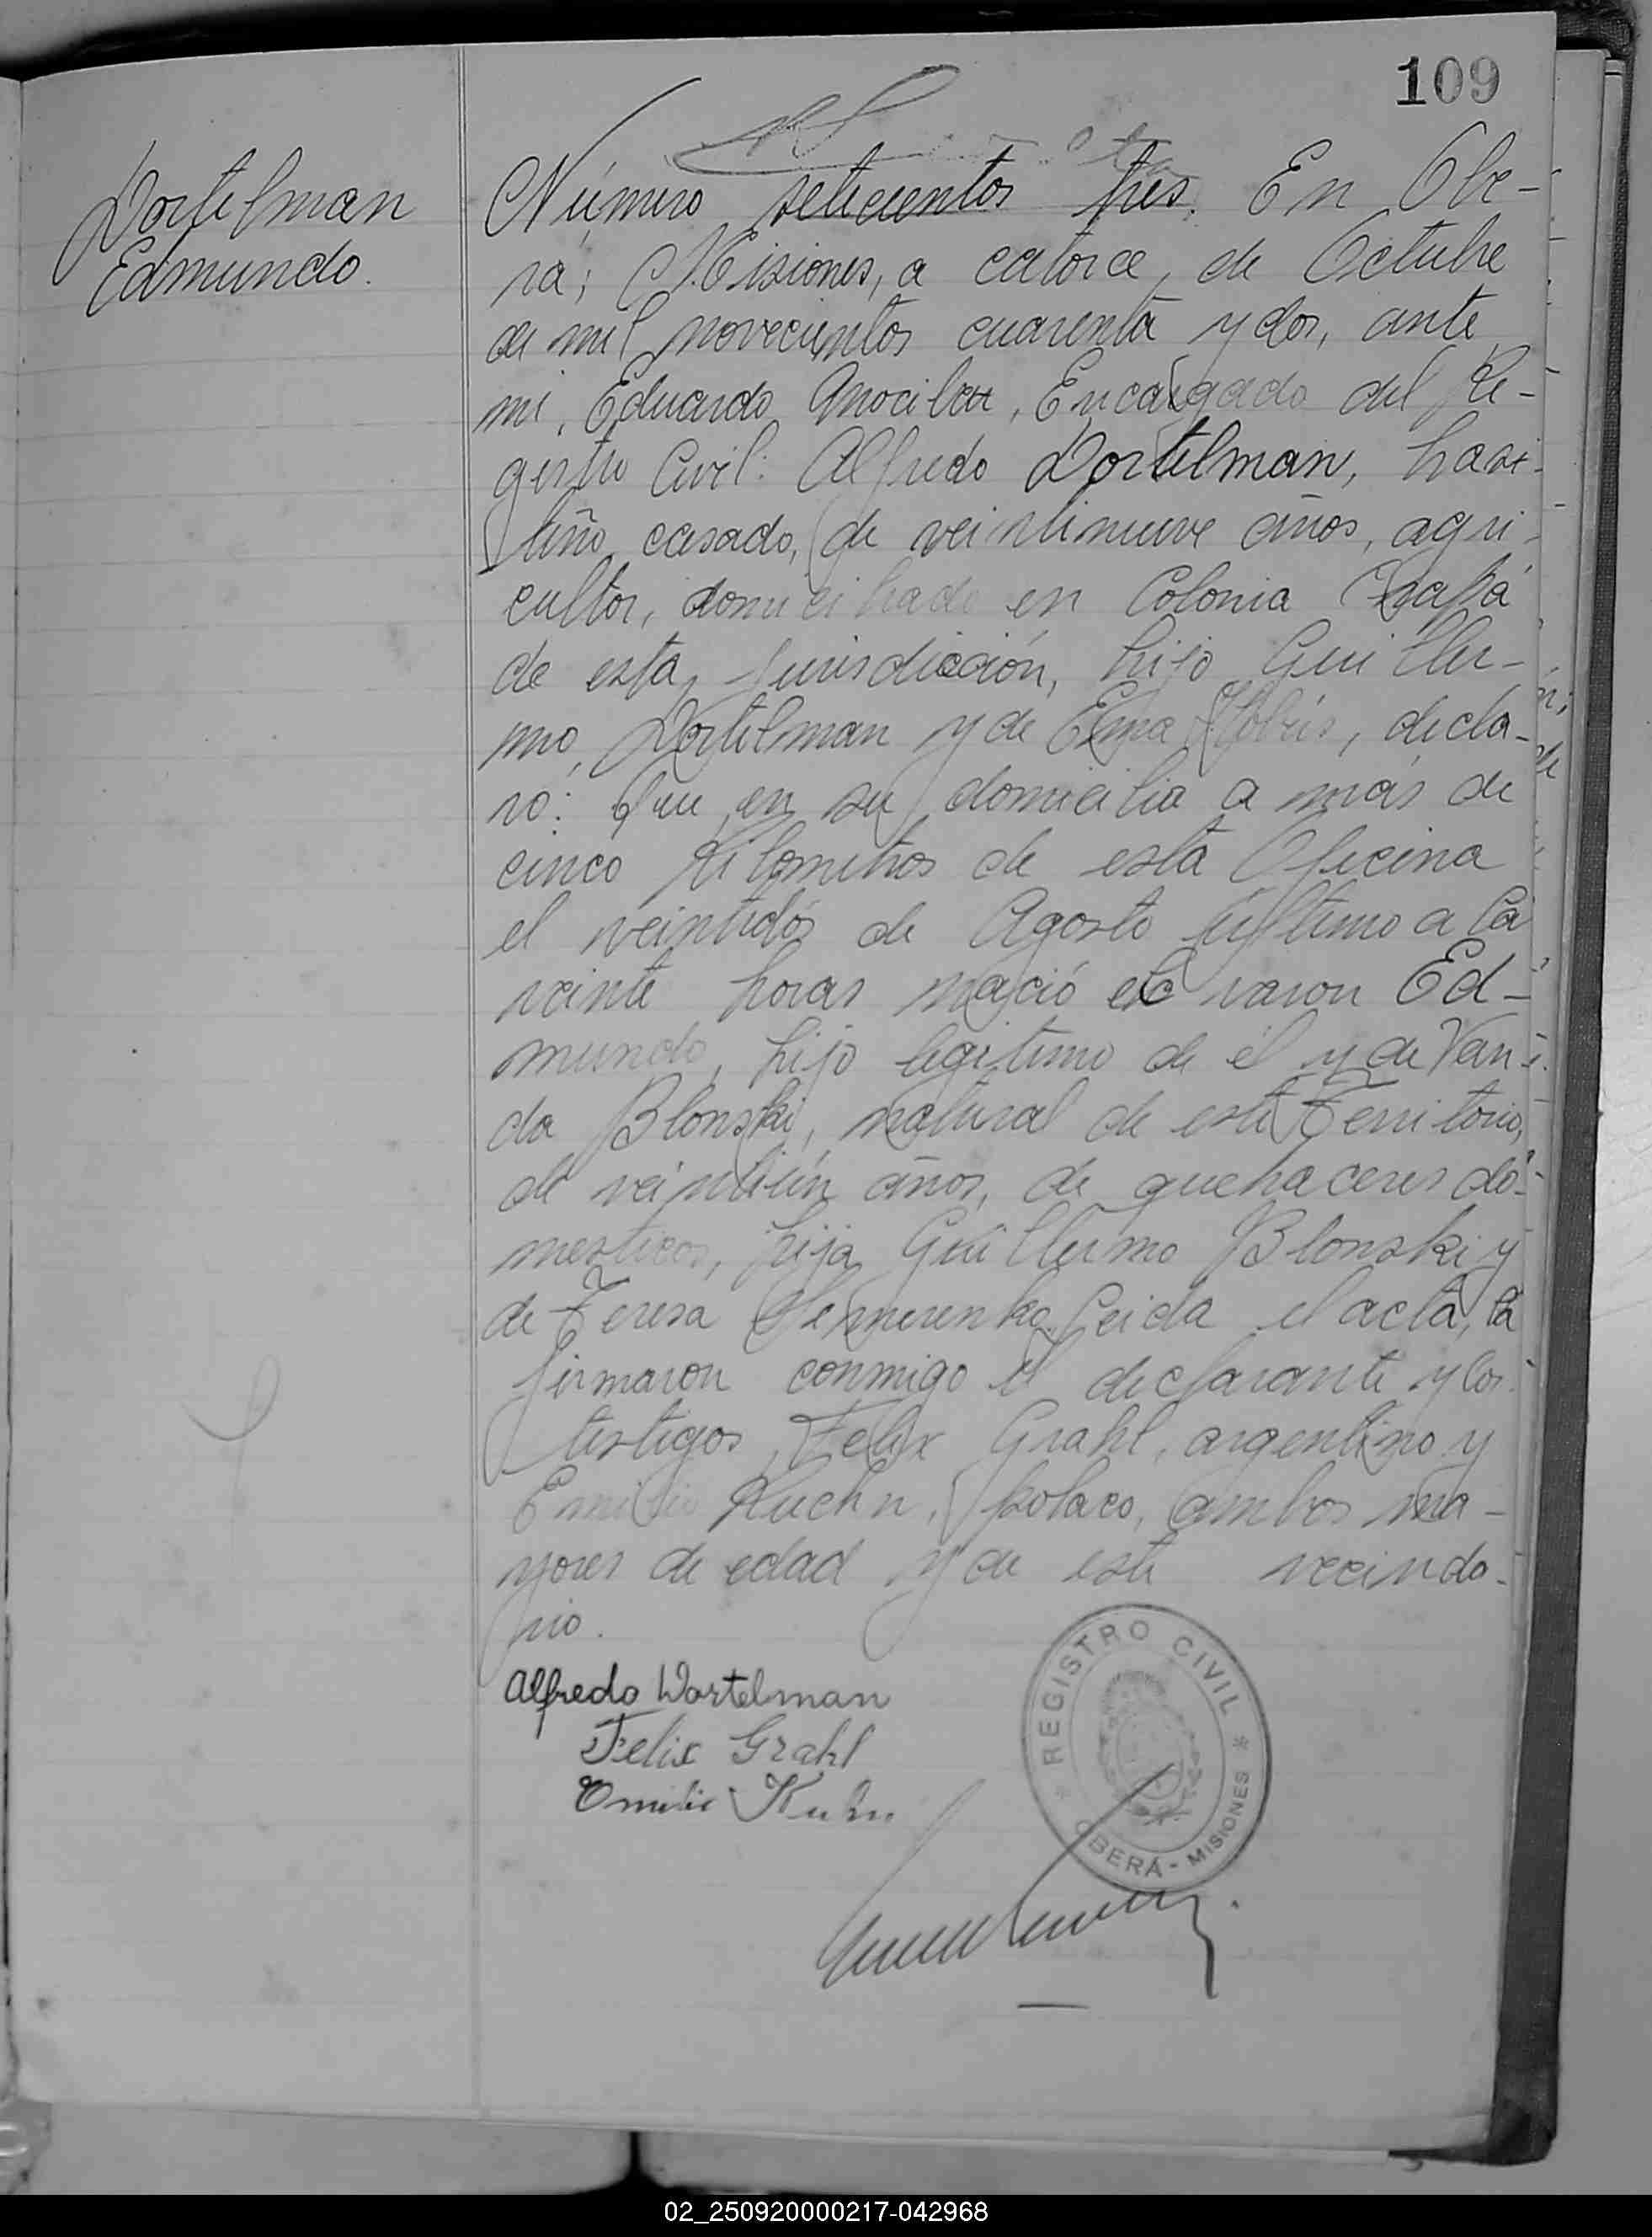 109
Wortelman
Edmundo.
Número setecientos tres. En Obe-
rá, Misiones, a catorce de Octubre
de mil novecientos cuarenta y dos, ante
mi, Eduardo Encargado del Re-
gistro Civil: Alfredo Wortelman, brasi-
leño casado, de veintinueve años, agri-
cultor, domiciliado en Colonia Chapá
de esta Jurisdicción, hijo Guiller-
mo Wortelman y de Ema decla-
ro: Que en su domicilio a más de
cinco Kilometros de esta Oficina
el veintidós de Agosto último a la
veinte horas nació el varon Ed-
mundo, hijo legitimo de él y de Van-
da Blonski, natural de este Territorio,
de veintiún años, de quehaceres do-
mesticos, hija Guillermo Blonski y
de Teresa Leida el acta, la
firmaron conmigo el declarante y los
testigos, Felix Grahl, argentino y
Emilio Kuehn, polaco, ambos ma-
yores de edad y de este vecinda-
rio.
Alfredo Wortelman
Felix Grahl
Emilio Kuhn
REGISTRO CIVIL
OBERÁ - MISIONES
02_250920000217-042968